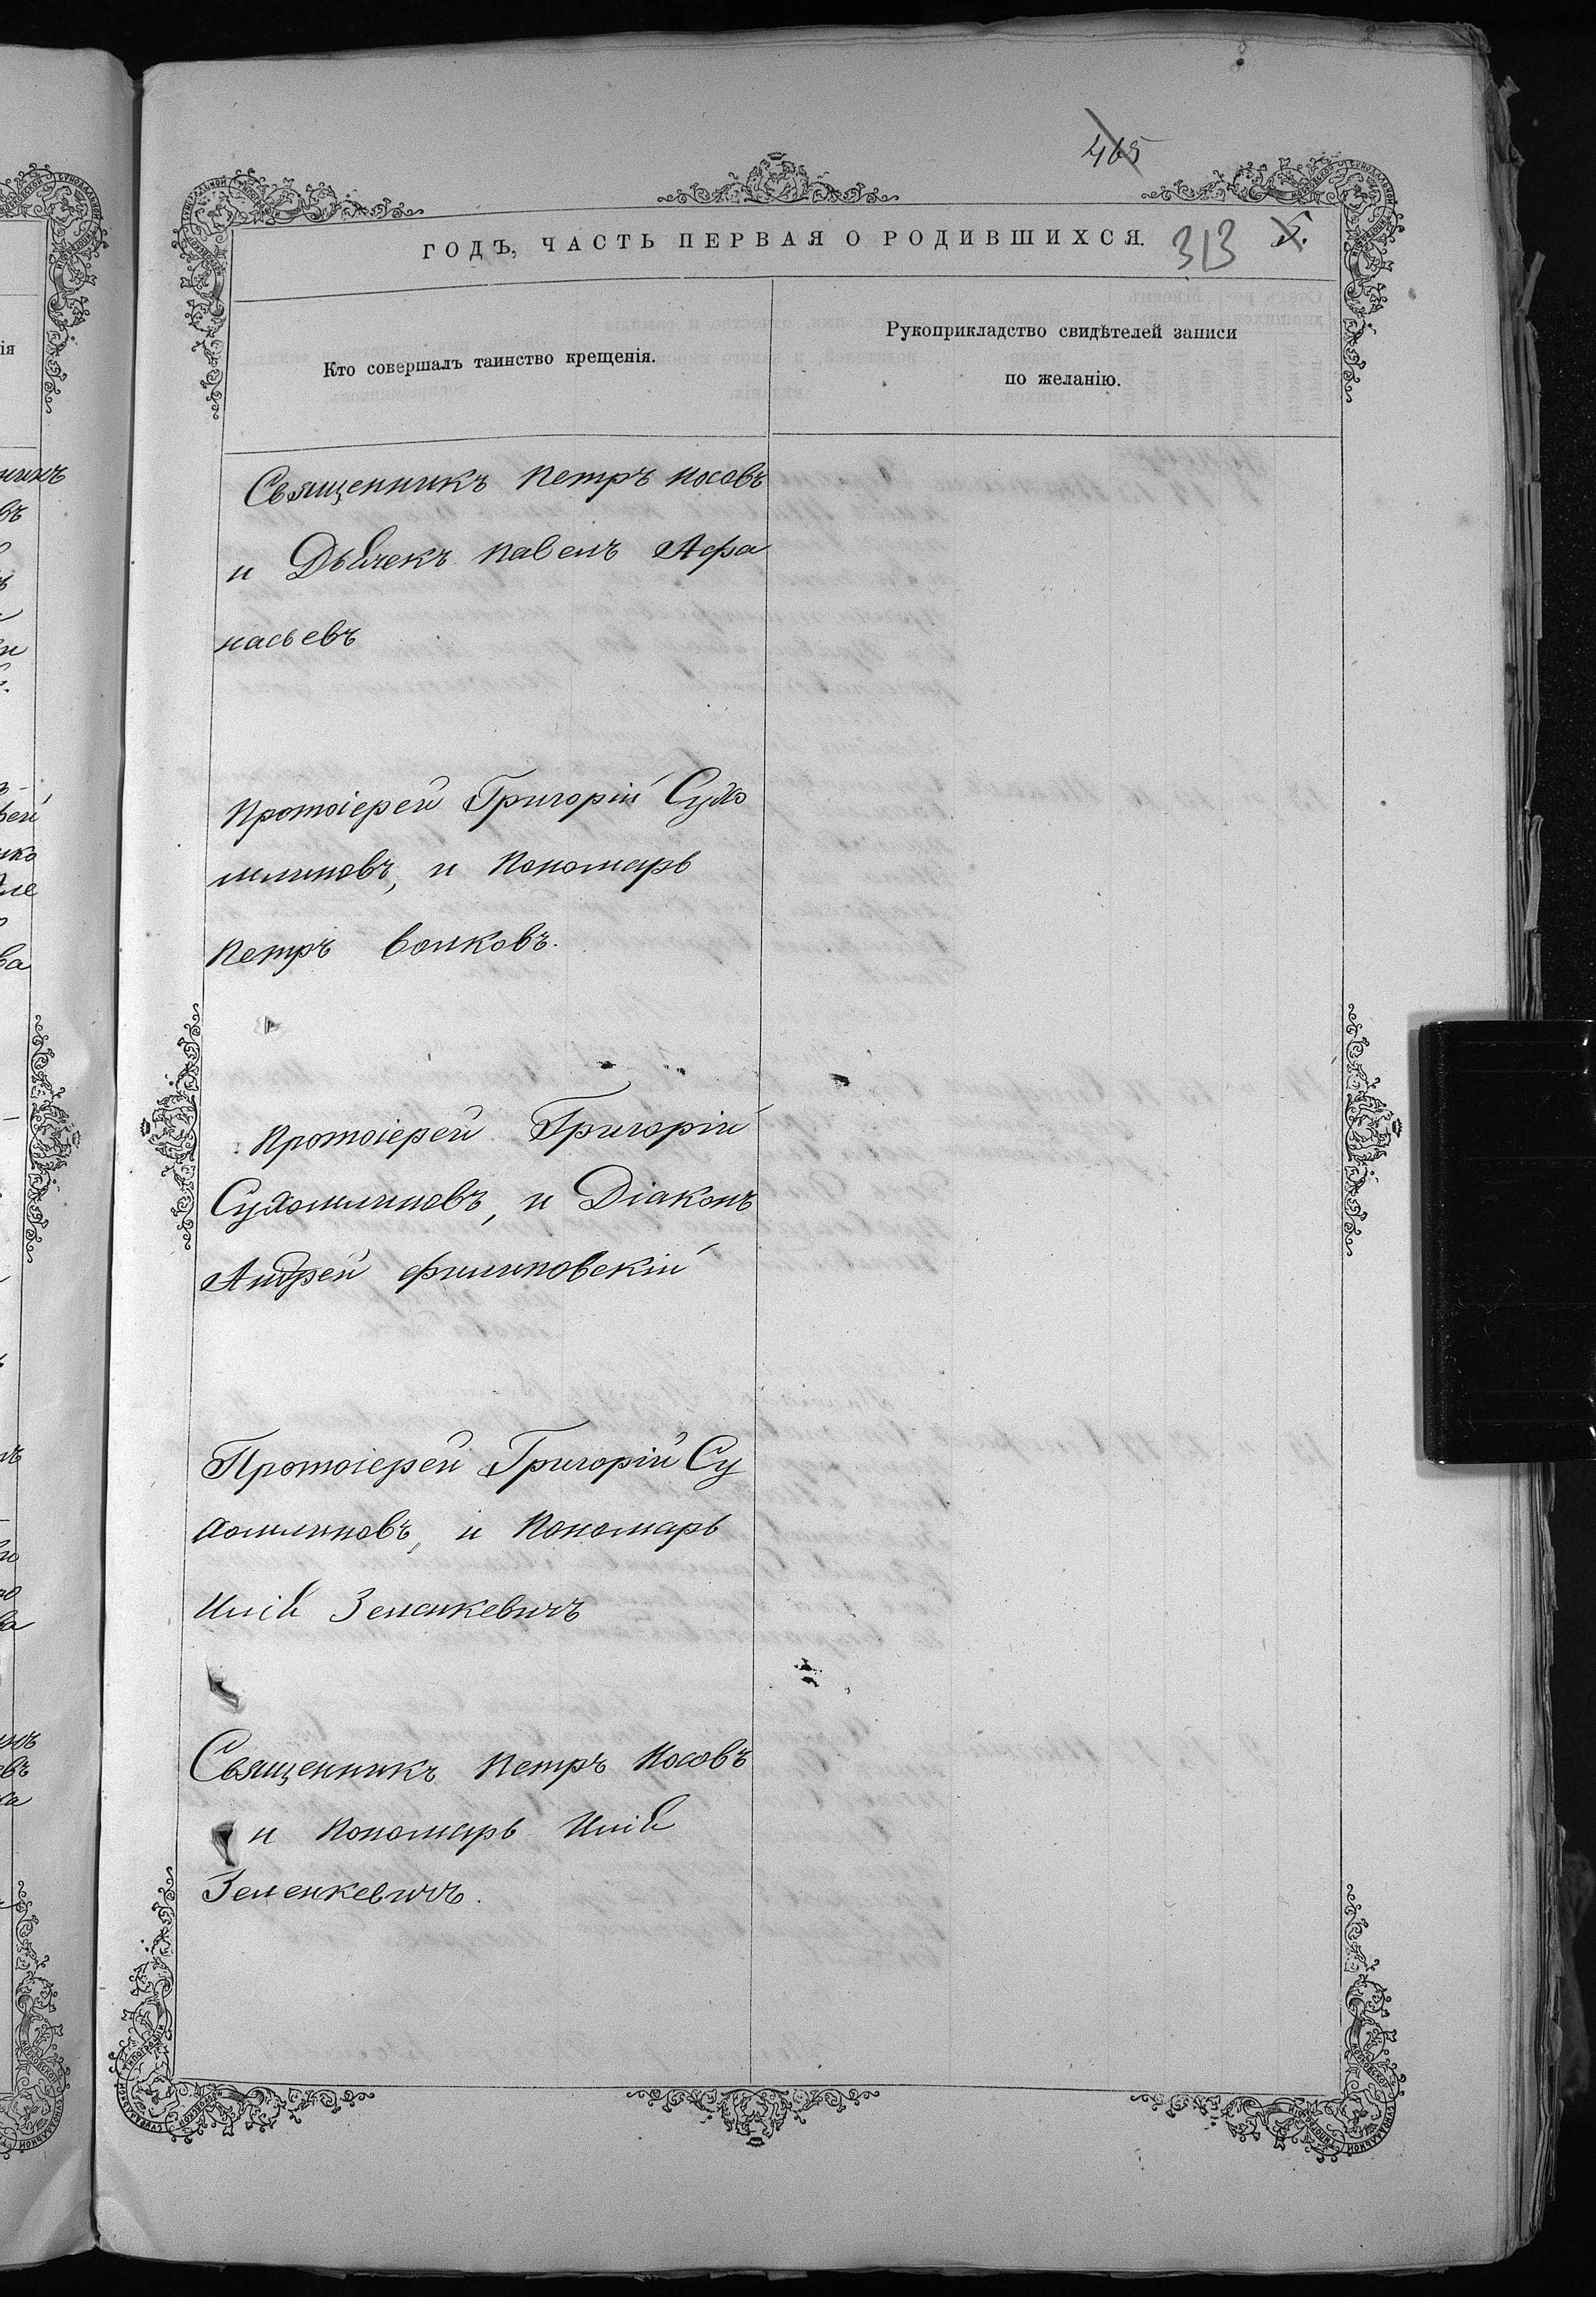 465
ГОДЪ, ЧАСТЬ ПЕРВАЯ О РОДИВШИХСЯ.
313
5.
Кто совершалъ таинство крещенія.
Рукоприкладство свидѣтелей записи
по желанію.
Священникъ Петръ Носовъ
и Дьячекъ Павелъ Афа
насьевъ
Протоіерей Григорій Сухо
млиновъ, и Пономарь
Петръ Волковъ.
Протоіерей Григорій
Сухомлиновъ, и Діаконъ
Андрей Филиповскій
Протоіерей Григорій Су
хомлиновъ, и Пономарь
Илія Зеленкевичъ
Священникъ Петръ Носовъ
и Пономарь Илія
Зеленкевичъ.